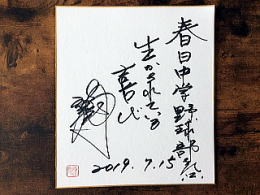 春日中学野球部さん江
生かされている
喜び
2019.7.15